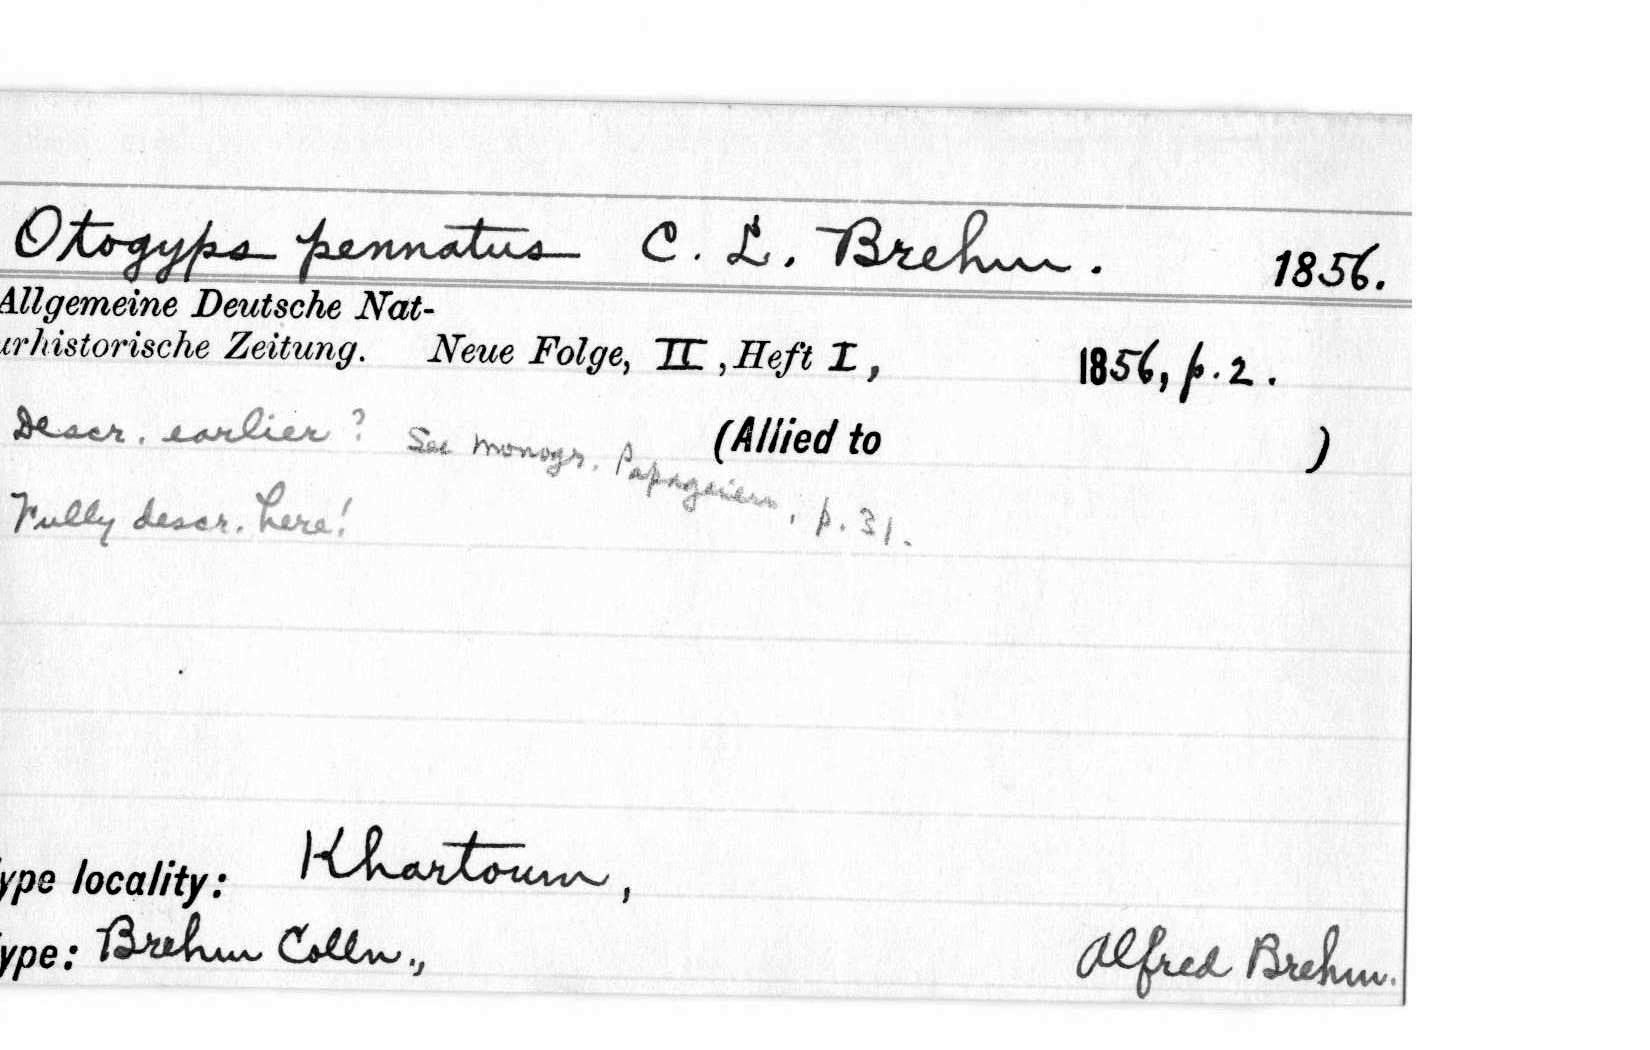 Otogyps pennatus C. L. Brehm. 1856.
Allgemeine Deutsche Nat-
urhistorische Zeitung. Neue Folge, II, Heft I, 1856, p. 2.
Descr. earlier? See Monogr. Papageien, p. 31. (Allied to )
Fully descr. here!
ype locality: Khartoum,
ype: Brehm Colln., Alfred Brehm.